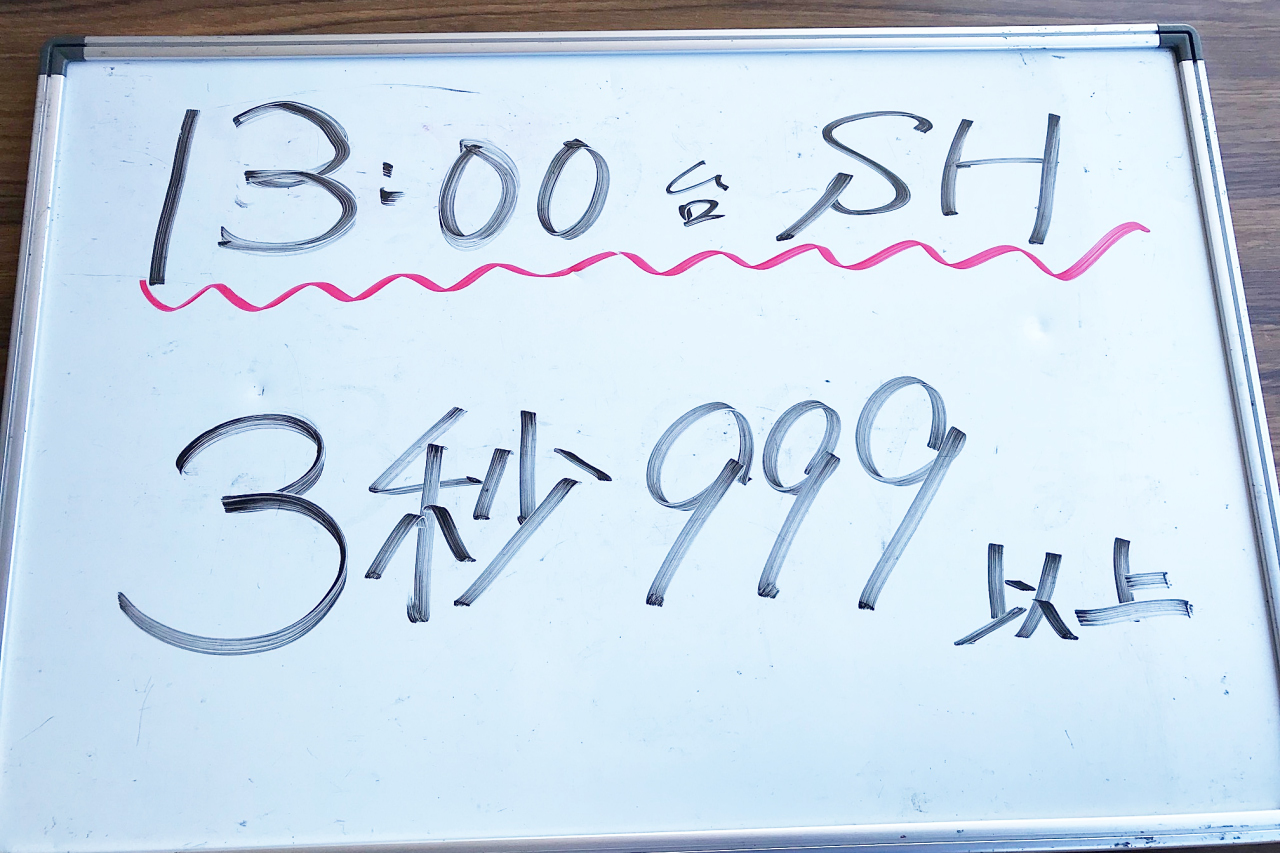 13:00台 SH
3秒999以上